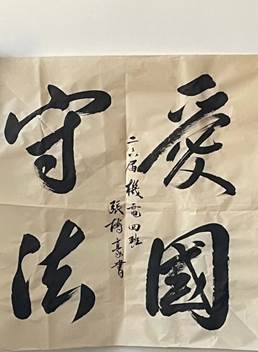 愛國
守法
二六届機電四班
張博豪書